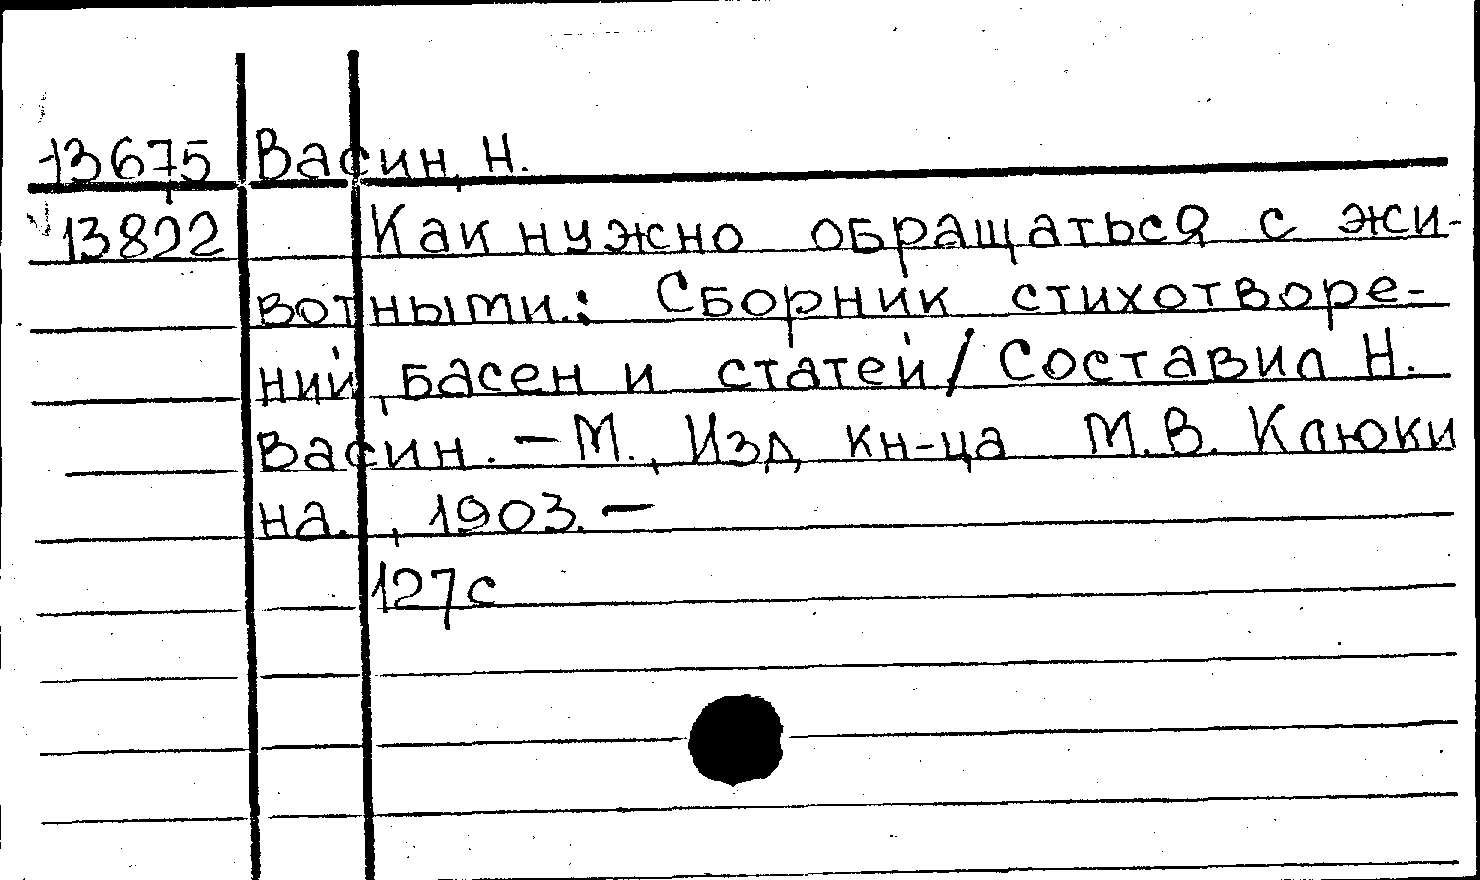 13675 Васин, Н.
13822 Как нужно обращаться с жи-
вотными.: Сборник стихотворе-
ний, басен и статей / Составил Н.
Васин. – М., Изд. кн-ца М.В. Клюки
на., 1903. –
127с